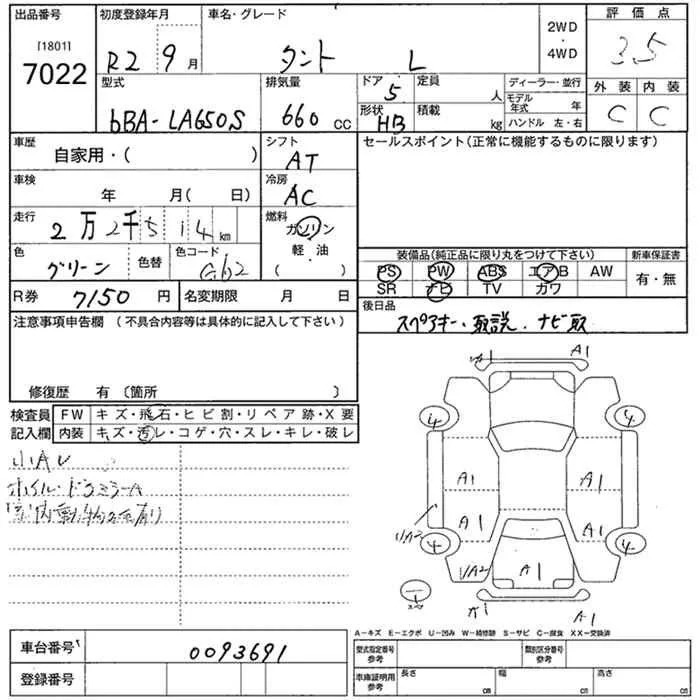 出品番号 初度登録年月 車名・グレード 2WD 評価点
[1801] 4WD
7022 R2 9月 タント L 3.5
型式 排気量 ドア 5 定員 人 ディーラー・並行 外装 内装
bBA-LA650S 660 CC 形状 HB 積載 kg モデル年式 年 C C
ハンドル 左・右
車歴 自家用・( ) シフト AT セールスポイント(正常に機能するものに限ります)
車検 年 月( 日) 冷房 AC
走行 2万2千514km 燃料 ガソリン
軽・油
( )
色 グリーン 色替 色コード G62 装備品(純正品に限り丸をつけて下さい) 新車保証書
PS PW ABS エアB AW 有・無
SR ナビ TV ガワ
R券 7150円 名変期限 月 日 後日品
スペアキー、取説、ナビ取
注意事項申告欄(不具合内容等は具体的に記入して下さい)
修復歴 有〔箇所 〕
検査員 FW キズ・飛石・ヒビ割・リペア跡・X要
記入欄 内装 キズ・汚レ・コゲ・穴・スレ・キレ・破レ
小AU
ホイル・ドアミラーA
A1
A1 A1
A1 A1
U/A2
U/A2 A1
A1 A1
A-キズ E-エクボ U-凹み W-補修跡 S-サビ C-腐食 XX-交換済
車台番号 0093691 型式指定番号 参考 類別区分番号 参考
登録番号 車庫証明用 参考 長さ cm 幅 cm 高さ cm